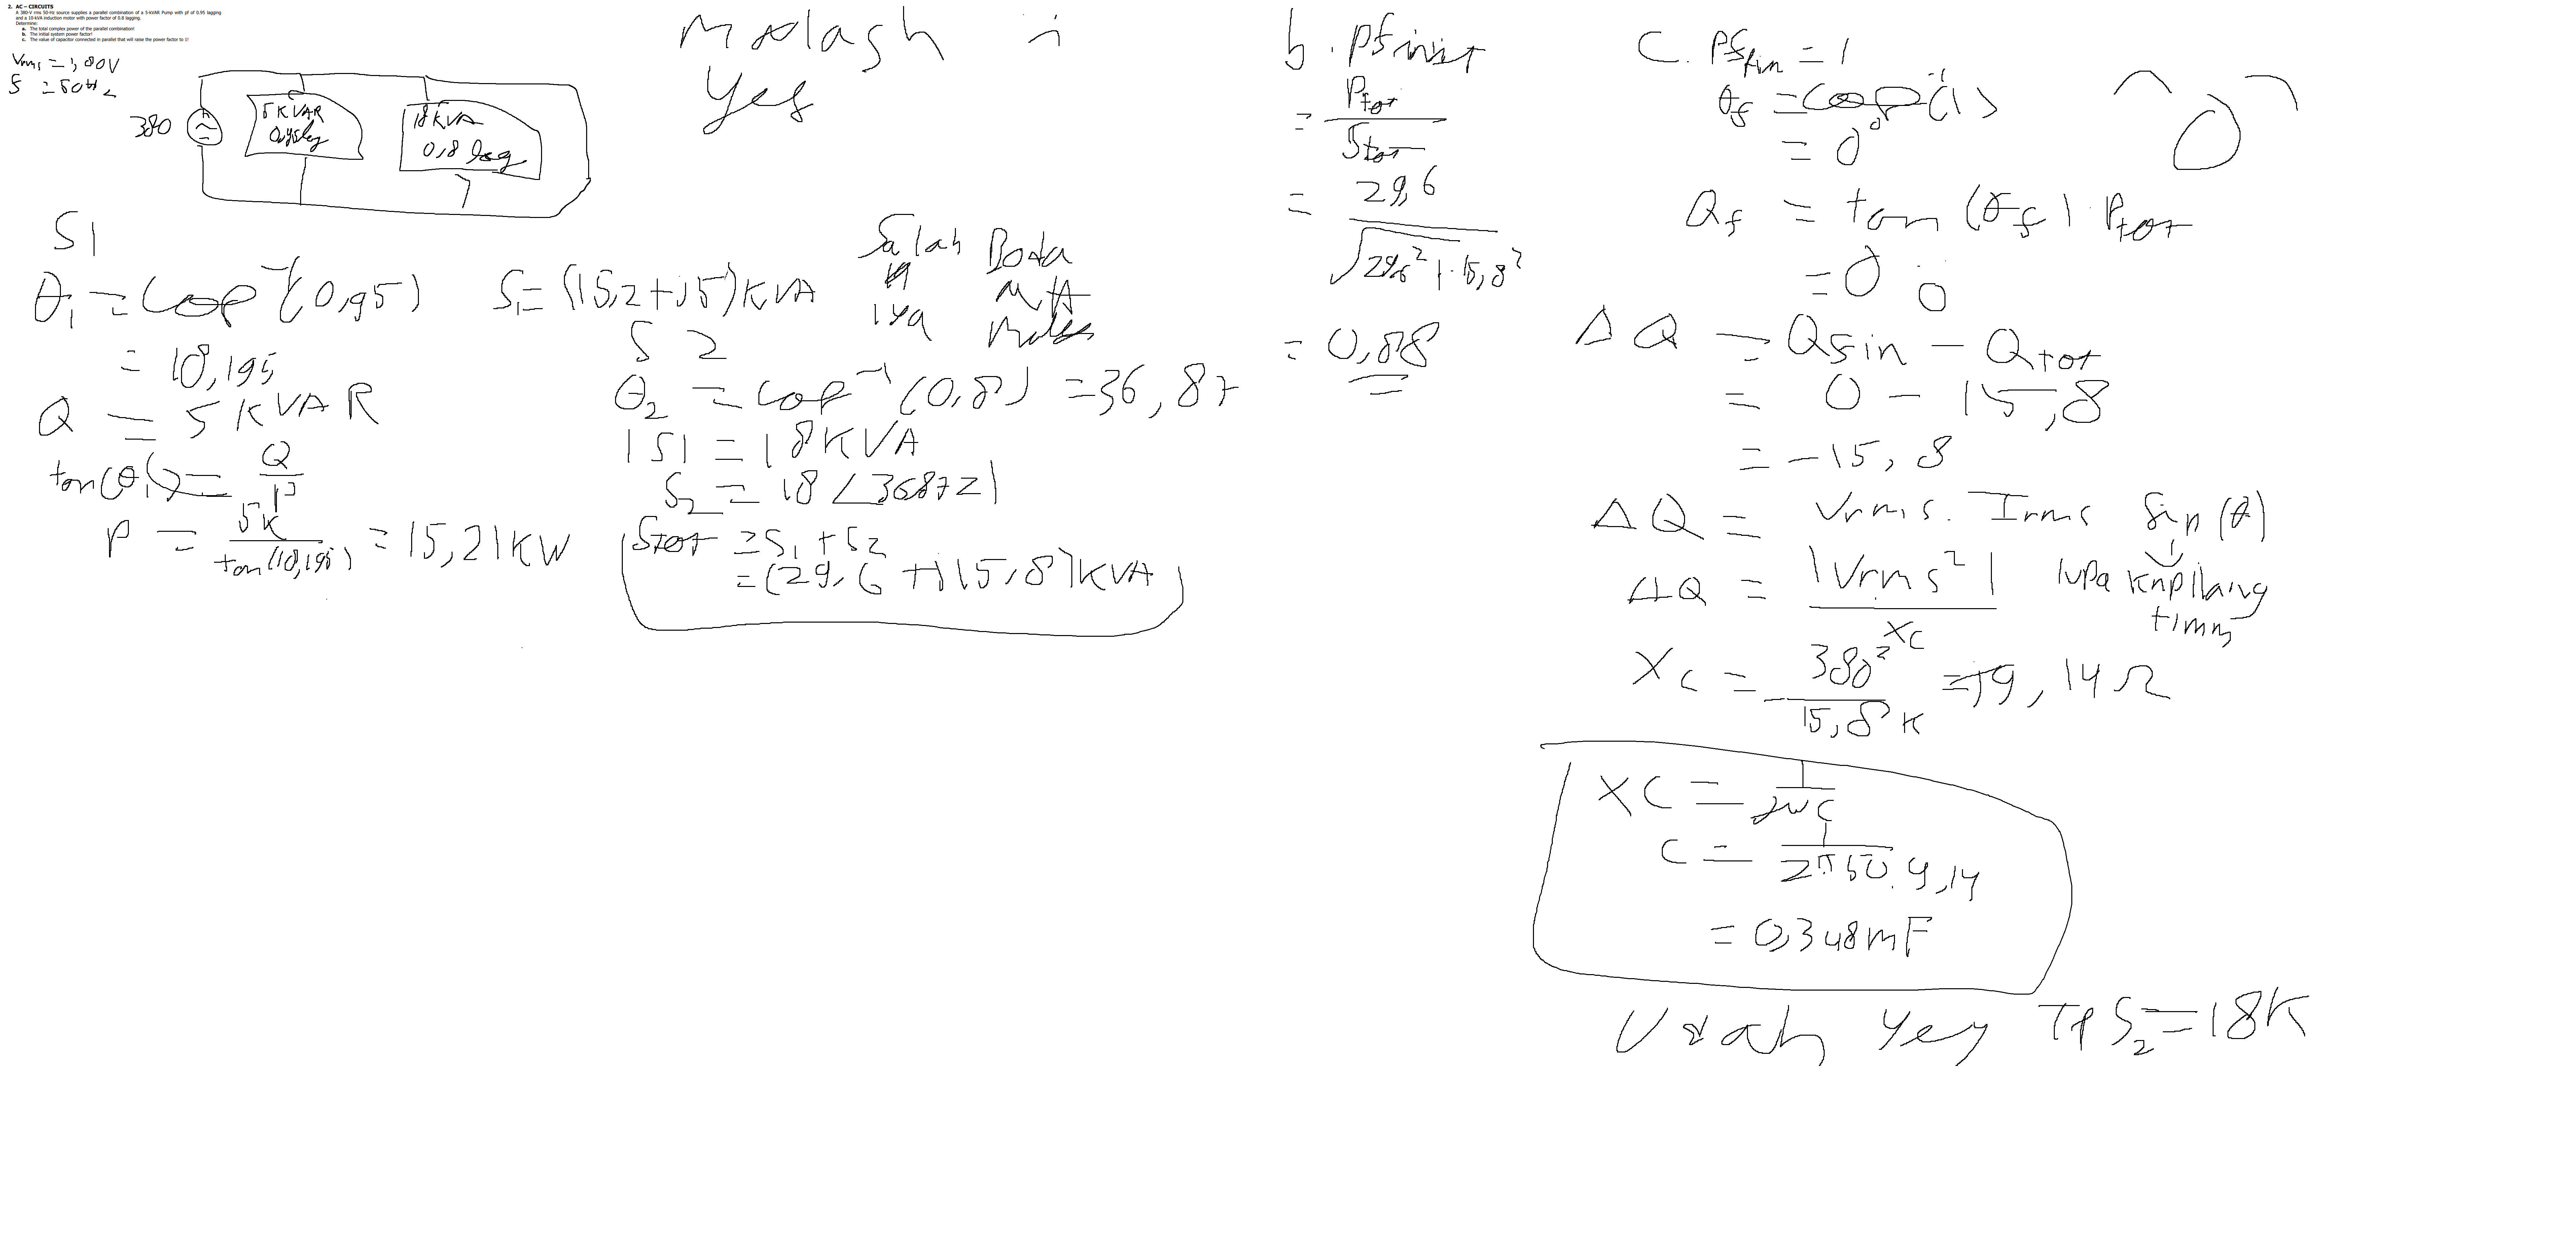 2. AC – CIRCUITS
A 380-V rms 50-Hz source supplies a parallel combination of a 5-kVAR Pump with pf of 0.95 lagging
and a 10-kVA induction motor with power factor of 0.8 lagging.
Determine:
a. The total complex power of the parallel combination!
b. The initial system power factor!
c. The value of capacitor connected in parallel that will raise the power factor to 1!
Vrms = 380V
f = 50Hz
380
5KVAR
18KVA
0,8 lag
yes
S1
θ1 = cos^-1(0,95)
= 18,195
Q = 5KVAR
tan(θ1) = Q/P
P = 5K/tan(18,195) = 15,21KW
S1 = (15,2+j5)KVA
Salah
iya
S2
θ2 = cos^-1(0,8) = 36,87
|S| = 18KVA
S2 = 18∠36,87
Stot = S1 + S2
= (29,6 + j15,8)KVA
b. pf init
= Ptot/Stot
= 29,6/√29,6²+15,8²
= 0,88
C. Pf fin = 1
θf = cos^-1(1)
= 0°
Qf = tan(θf) Ptot
= 0
ΔQ = Qfin - Qtot
= 0 - 15,8
= -15,8
ΔQ = Vrms. Irms sin(θ)
ΔQ = |Vrms²|/Xc
lupa knp ilang
Xc = 380²/15,8K = 9,14Ω
XC = 1/jwC
C = 1/2π50.9,14
= 0,348mF
Udah yey TP S2=18K